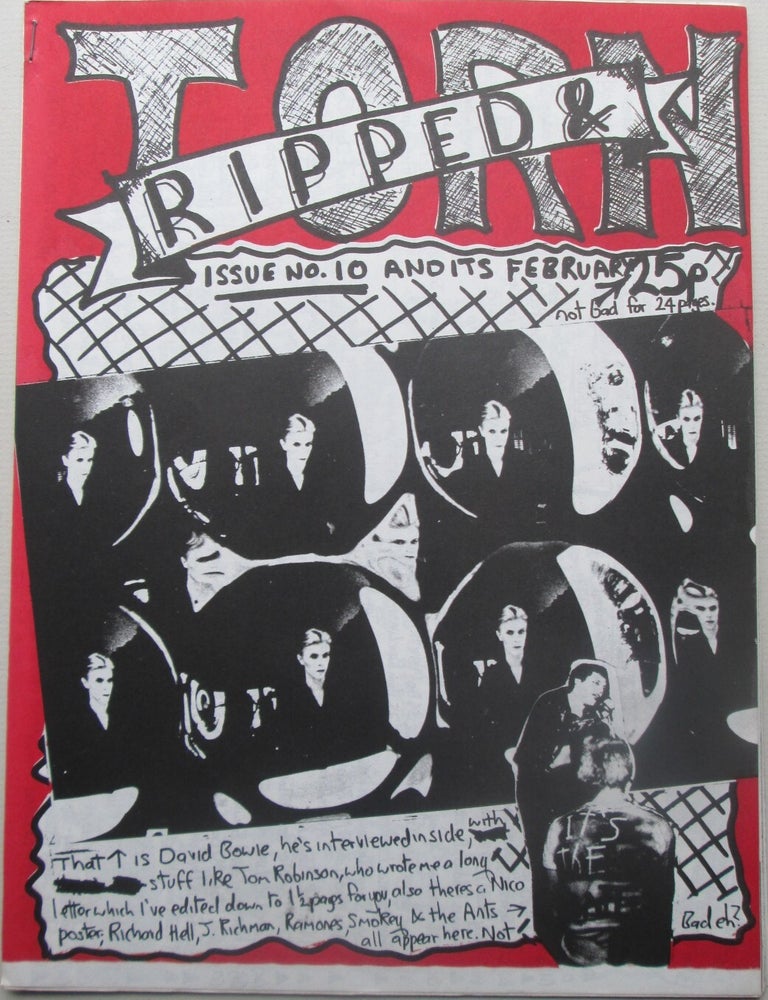 TORN
RIPPED &
ISSUE NO. 10 AND ITS FEBRUARY 25p
not bad for 24 pages.
That ↑ is David Bowie, he's interviewed inside, with
stuff like Tom Robinson, who wrote me a long
letter which I've edited down to 1½ pages for you, also theres a Nico
poster, Richard Hell, J. Richman, Ramones, Smokey & the Ants →
all appear here. Not
Bad eh?
IT'S
THE